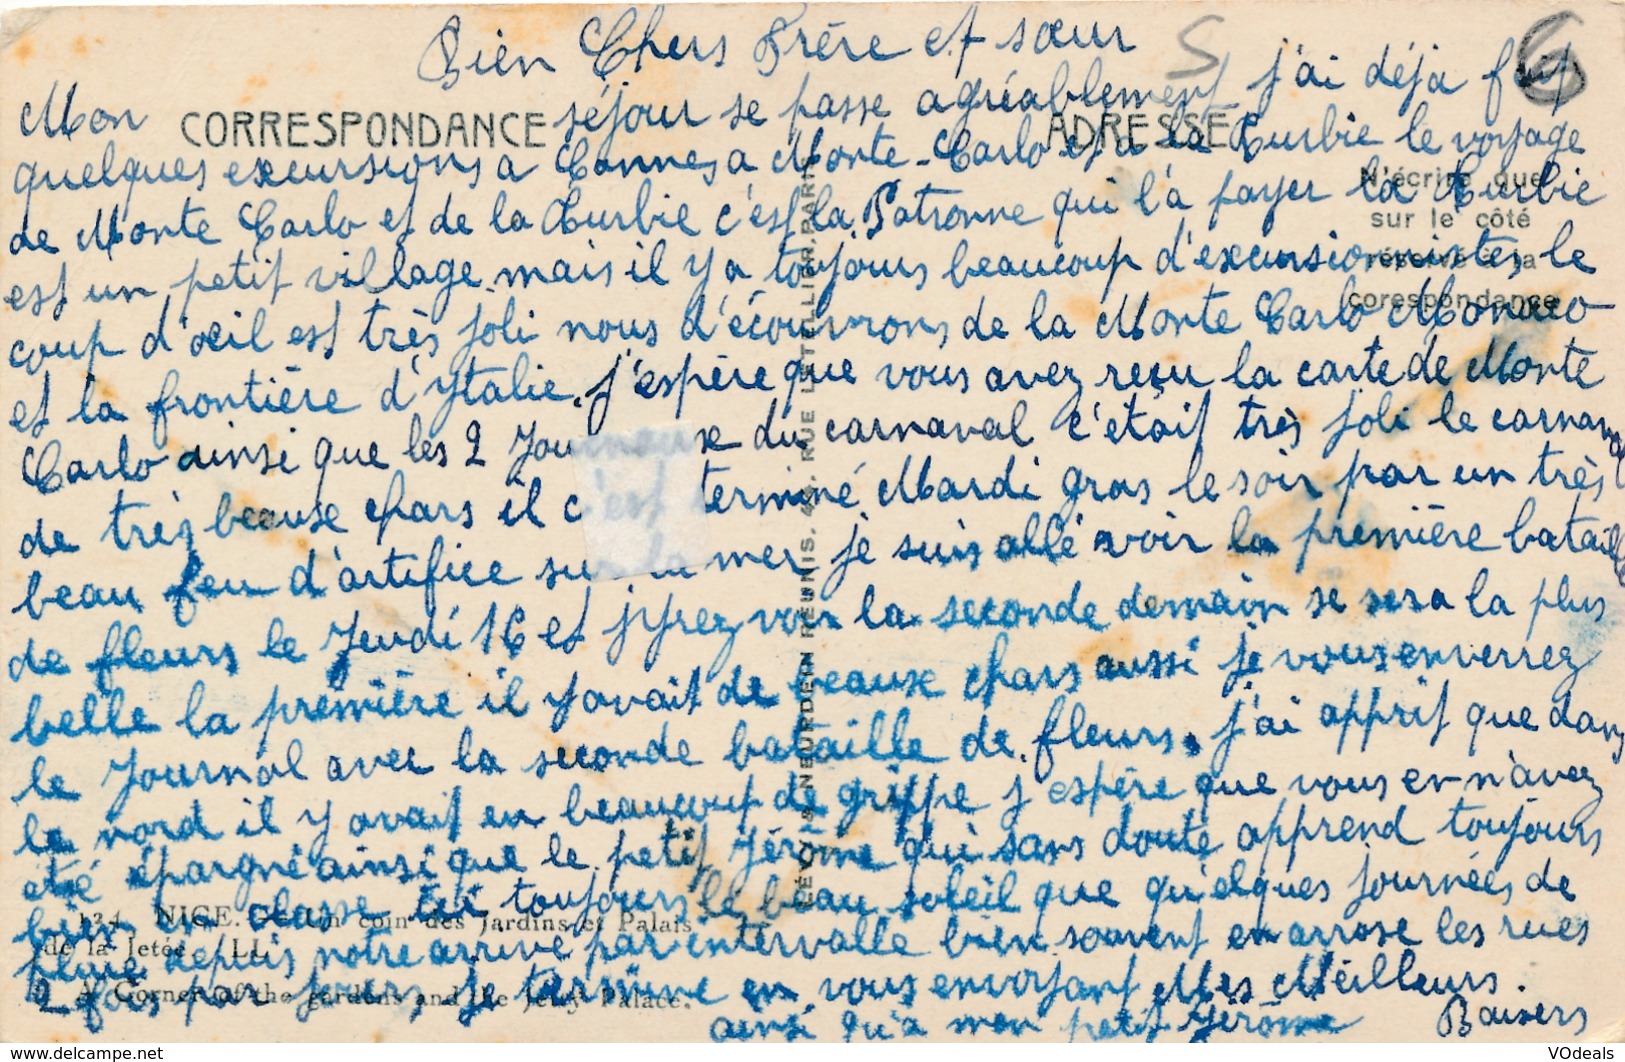 Bien Chers Frère et sœur
Mon séjour se passe agréablement j'ai déja fait
CORRESPONDANCE
ADRESSE
quelques excursions a Cannes a Monte-Carlo et a la Turbie le voyage
de Monte Carlo et de la Turbie c'est la Patronne qui l'a payer la Turbie
N'écrire que
sur le côté
réservé à la
corespondance
est un petit village mais il y a toujours beaucoup d'excursionnistes le
coup d'œil est très joli nous d'écouvrons de la Monte Carlo Monaco
et la frontière d'Ytalie. j'espère que vous avez reçu la carte de Monte
Carlo ainsi que les 2 Journaux du carnaval c'étoit très joli le carnaval
de très beause chars il c'est terminé Mardi gras le soir par un très
beau feu d'artifice sur la mer je suis allé voir la première bataille
de fleurs le Jeudi 16 et j'yrez voir la seconde demain se sera la plus
belle la première il y avait de beause chars aussi je vous enverrez
le Journal avec la seconde bataille de fleurs. j'ai apprit que dans
le nord il y avait en beaucoup de grippe j'espère que vous en n'avez
été épargné ainsi que le petit Jérôme qui sans doute apprend toujours
bien en classe ici toujours le beau soleil que quelques journées de
pluie depuis notre arrivé par intervalle bien souvent en arrose les rues
2 fois par jours, je termine en vous envoyant Mes Meilleurs.
Baisers
ainsi qu'a mon petit Jérôme
134 NICE. — Un coin des Jardins et Palais
de la Jetée. LL
A Corner of the gardens and the Jetty Palace.
LÉVY & NEURDEIN RÉUNIS, 44, RUE LETELLIER, PARIS
S
6
VOdeals